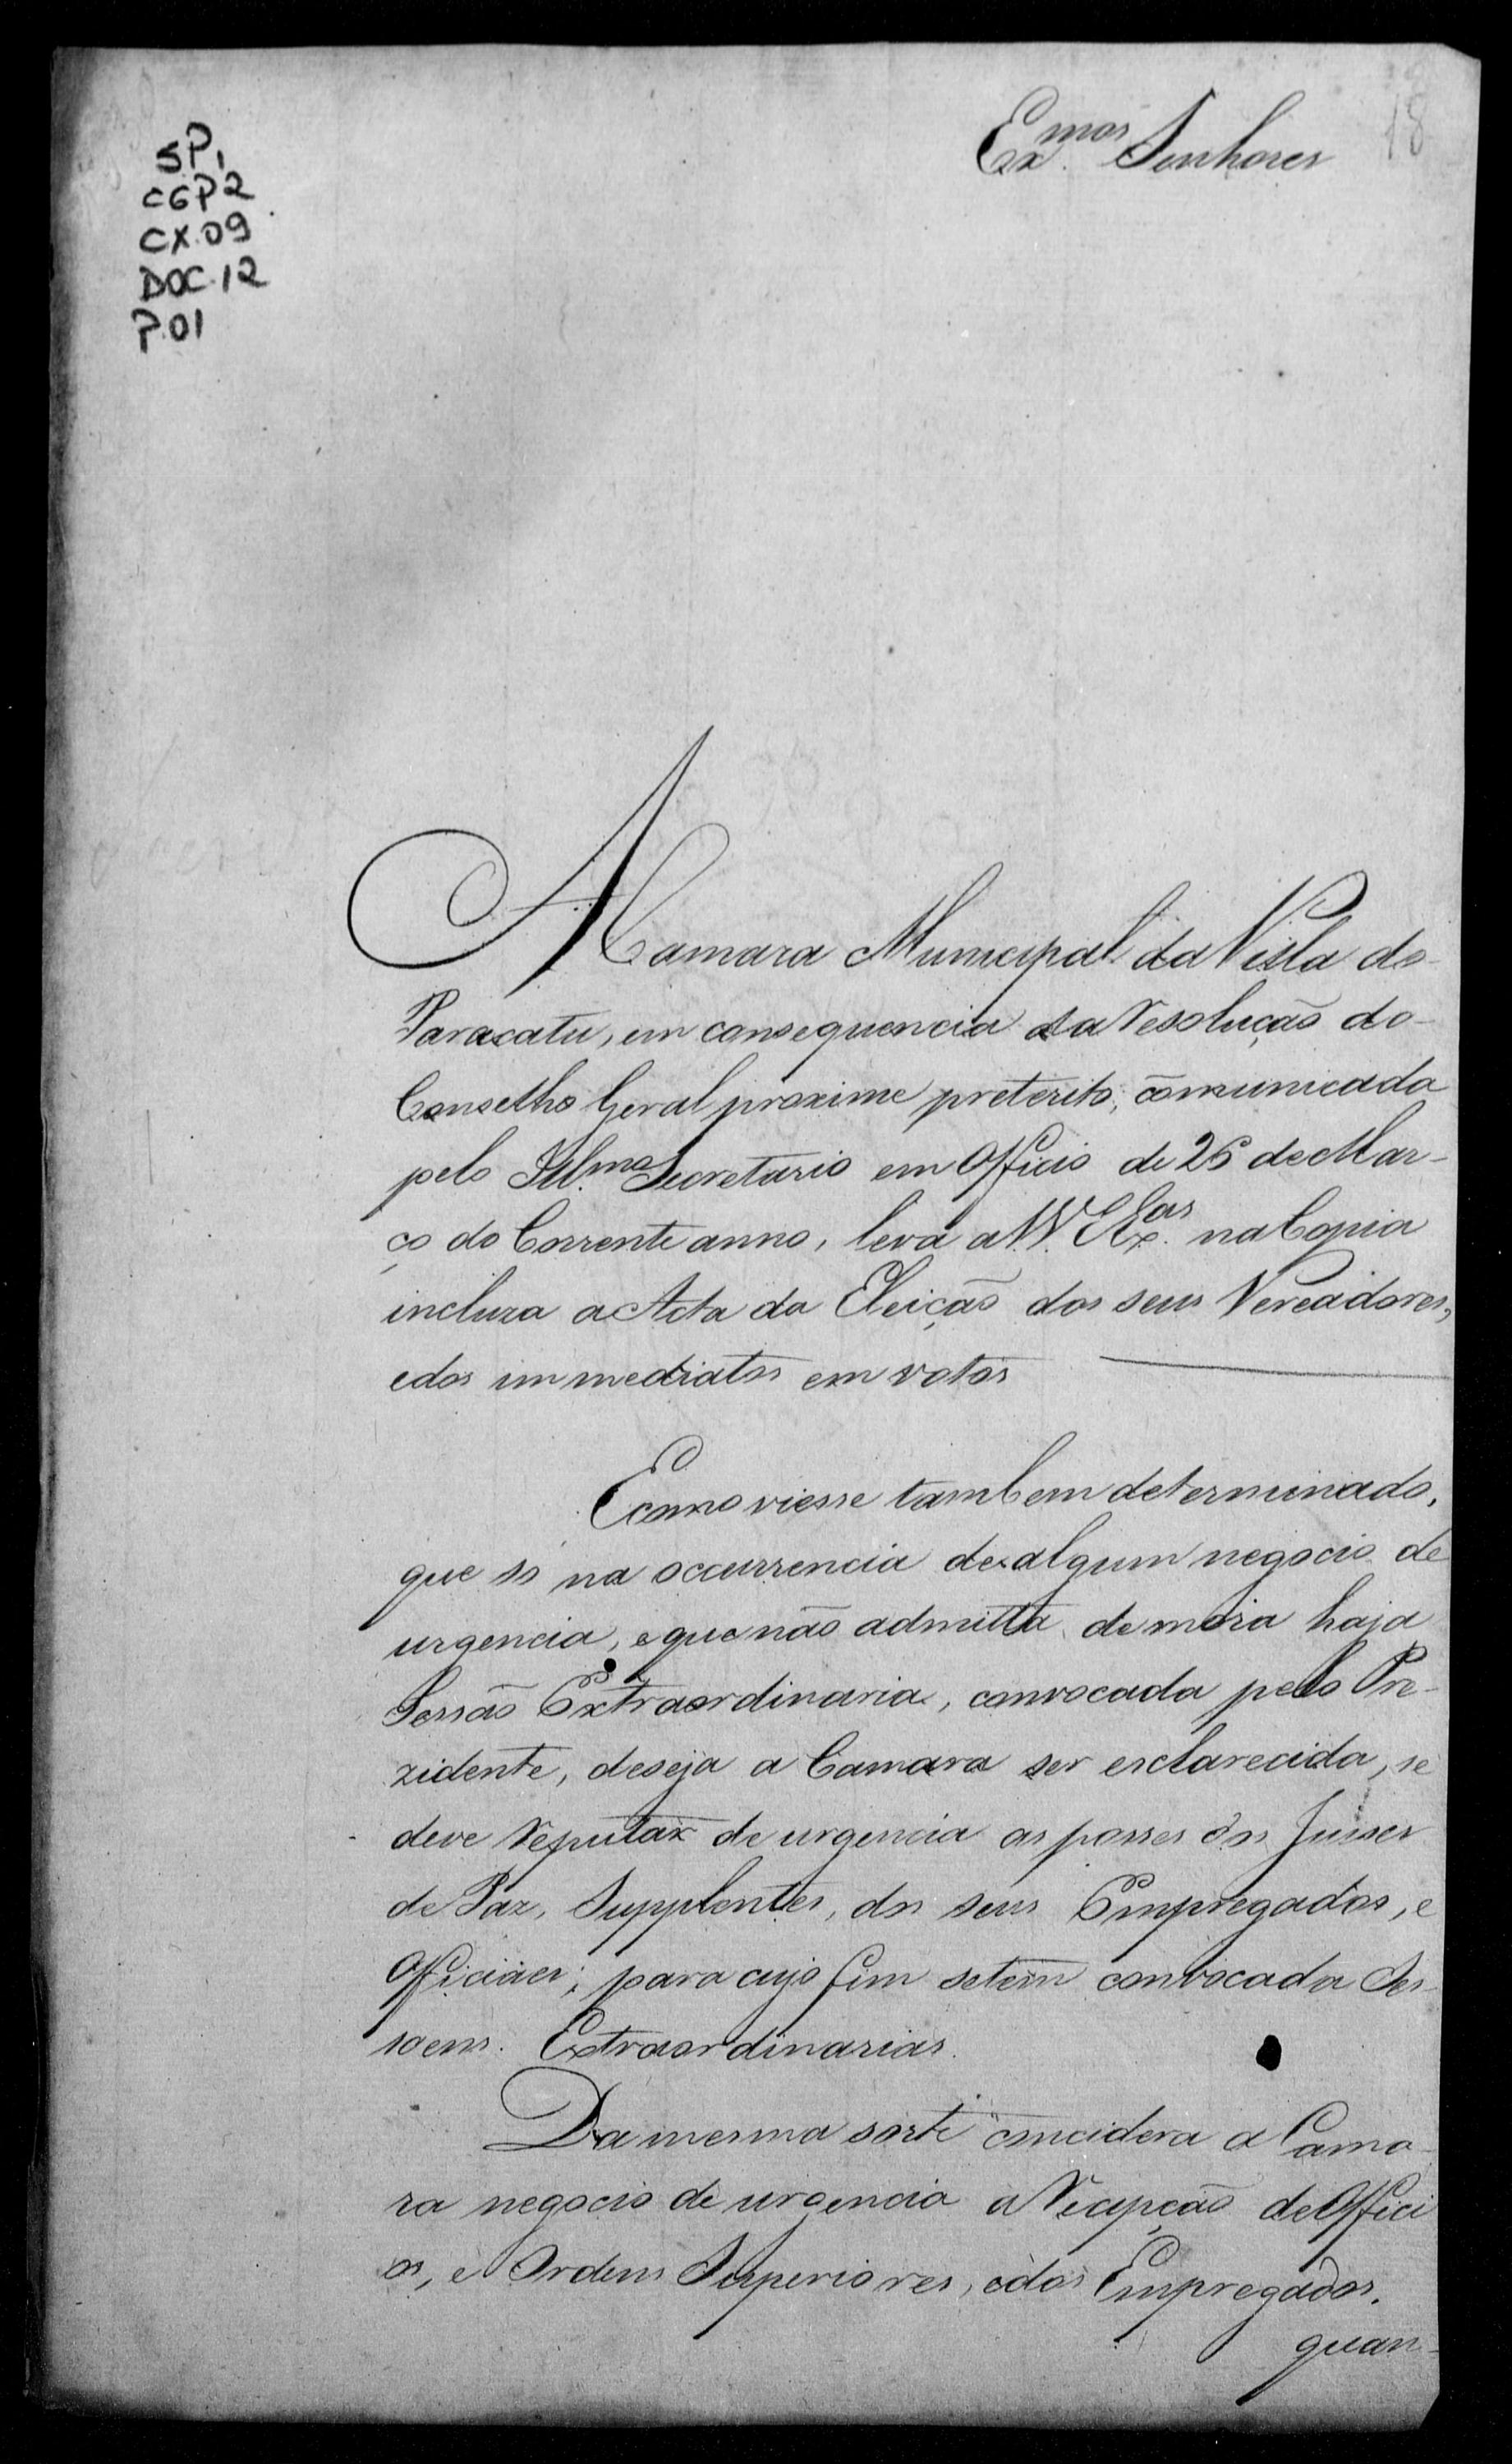 18
Ex.mos Senhores
SP1
CGP2
CX.09
DOC.12
P.01
A Camara Municipal da Villa do
Paracatu, em consequencia da Resolução do
Conselho Geral proxime preterito, comunicada
pelo Ill.mo Secretario em Officio de 26 de Mar-
ço do Corrente anno, leva a V.V. EEx.as na Copia
incluza a Acta da Eleição dos seus Vereadores,
e dos immediatos em votos
E como viesse tambem determinado,
que só na occurrencia de algum negocio de
urgencia, e que não admitta demora haja
Sessão Extraordinaria, convocada pelo Pre-
zidente, deseja a Camara ser esclarecida, se
deve reputar de urgencia as posses dos Juises
de Paz, Supplentes, dos seus Empregados, e
Officiaes; para cujo fim se tem convocado Ses-
soens Extraordinarias.
Da mesma sorte concidera a Cama-
ra negocio de urgencia a Recepção de Offici
os, e Ordens Superiores, e dos Empregados,
quan-